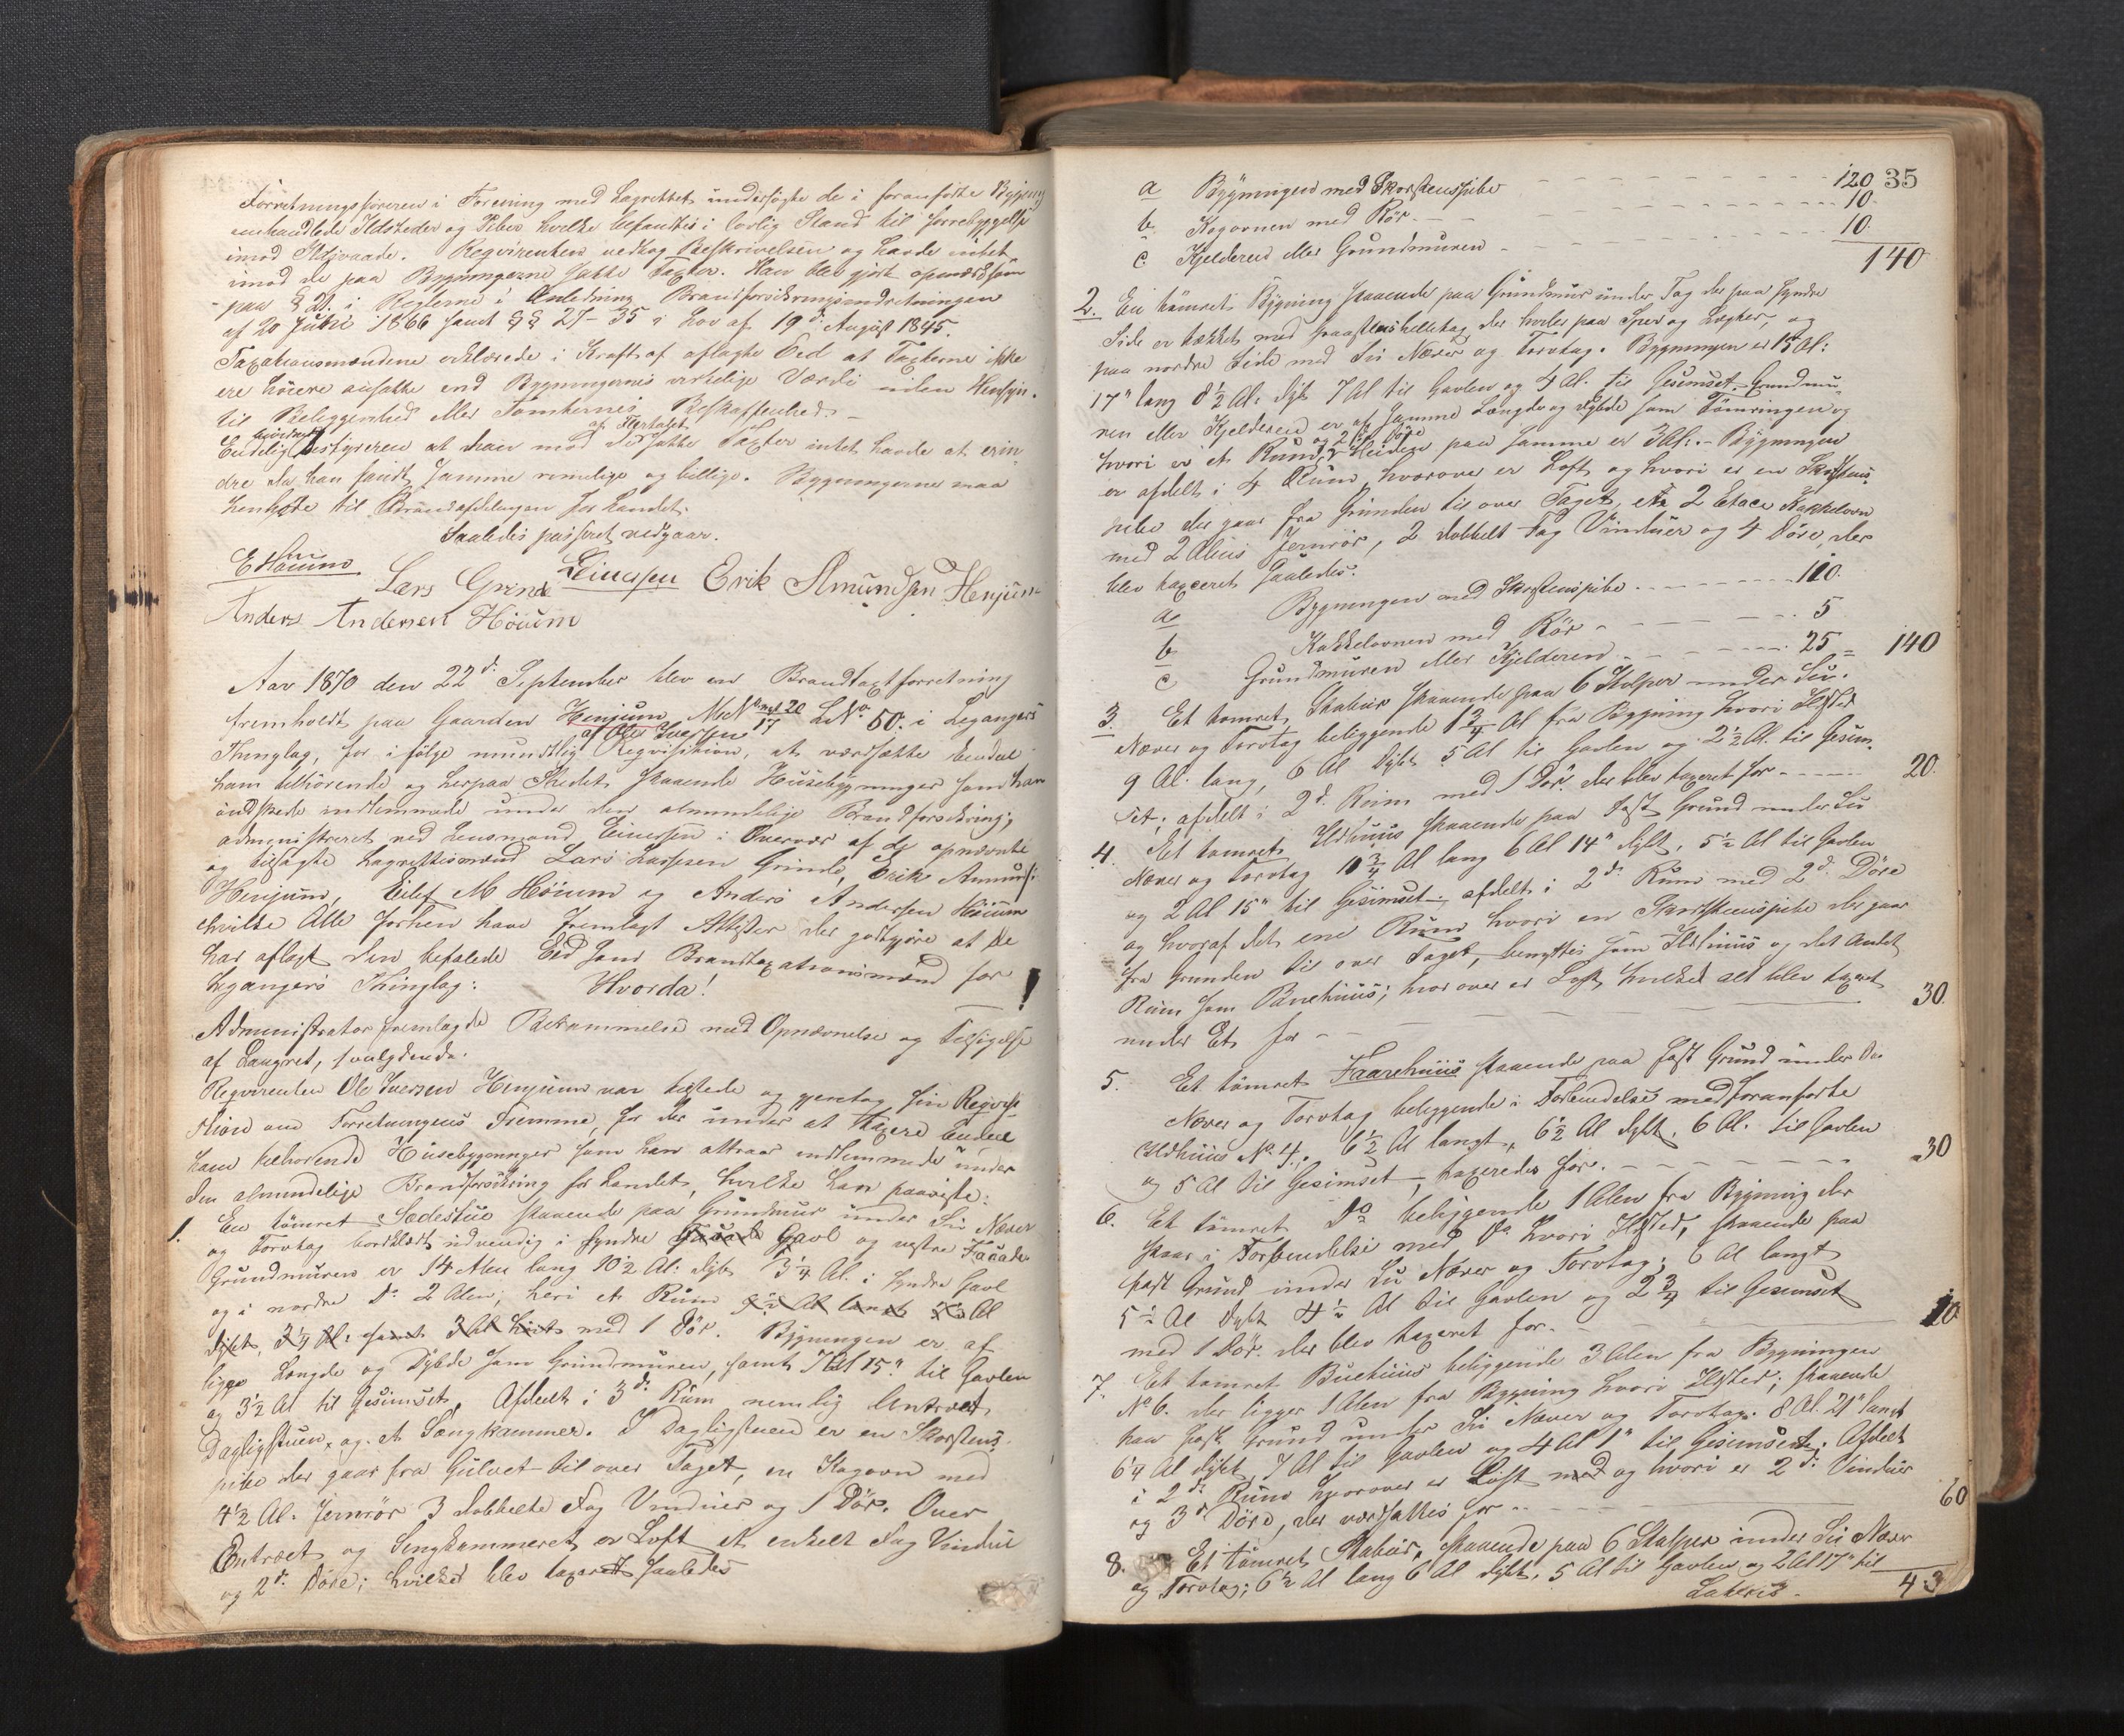 Forretningsføreren i Forening med Lagrettet undersøgte de i foranførte Bygning
omhandlede Ildsteder og Piber hvilke befandtes i lovlig Stand til forrebyggelse
imod Ildsvaade. Reqvirenten vedtog Beskrivelsen og havde intet
imod de paa Bygningerne satte Taxter. Han blev gjort opmærksom
paa § 21. i Reglerne i Anledning Brandforsikringsindretningen
af 20 Juni 1866 samt §§ 27-35 i Lov af 19d: August 1845.
Taxationsmændene erklærede i Kraft af aflagte Eed at Taxterne ikke
ere høiere ansatte end Bygningernes virkelige Værdi uden Hensyn
til Beliggenhed eller Tomternes Beskaffenhed. -
af Flertallet
Endelig bestyreren at han mod de satte Taxter intet havde at erin-
dre da han fandt samme rimelige og billige. Bygningerne maa
henhøre til Brandafdelingen for Landet.
Saaledes passeret vedgaar.
E Høium Lars Grinde LEinersen Erik Amundsen Henjum
Anders Andersen Höium
Aar 1870 den 22d: September blev en Brandtaxtforretning
fremholdt paa Gaarden Henjum, Mat No 20/17 LNo 50: i Leganger
af Ole Iversen
Thinglag, for i følge mundtlig Reqvisition, at værdsætte Eendeel
ham tilhørende og herpaa Stedet staaende Huusebygninger som han
ønskede indlemmede under den almindelige Brandforsikring;
administreret ved Lensmand Einersen i Overvær af de opnævnte
og tilsagte Lagrettesmænd Lars Larssen Grinde, Erik Amunds:
Henjum, Eilef M Høium og Anders Andersen Høium
hvilke Alle forhen have fremlagt Attester der godtgjøre at de
har aflagt den befalede Eed som Brandtaxationsmænd for
Legangers Thinglag: Hvorda!
Administrator fremlagde Bekrammelse med Opnævnelse og Tilsigelse
af Laugret, saalydende.
Reqvirenten Ole Iversen Henjum var tilstede og gjentog sin Reqvisi-
tion om Forretningens Fremme, for der under at taxere Eendeel
ham tilhørende Huusebygninger som han attraar indlemmede under
den almindelige Brandforsikring for Landet, hvilke han paaviste:
1. En tømret Sædestue staaende paa Grundmuur under Su Næver
og Torvtag bordklædt udvendig i syndre Facade Gavl og vestre Facade
Grundmuren er 14 Alen lang 10½ Al: dyb 3¼ Al. i syndre Gavl
og i nordre do 2 Alen; heri et Rum Al langt Al
dybt, 3¼ Al: samt 3 Al høit med 1 Dør. Bygningen er af
lige Længde og Dybde som Grundmuren, samt 7 Al 15" til Gavlen
og 3½ Al til Gesimset. Afdeelt i 3de Rum nemlig Entreet
Dagligstuen, og et Sængkammer. I Dagligstuen er en Skorsteens-
pibe der gaar fra Gulvet til over Taget, en Kogovn med
4½ Al. Jernrør 3 dobbelte Fag Vinduer og 1 Dør. Over
Entreet og Sengkammeret er Loft et enkelt Fag Vindue
og 2de Døre; hvilket blev taxeret saaledes
35
a Bygningen med Skorstenspibe 120
b. Kogovnen med Rør 10.
c Kjelderen eller Grundmuren 10.
140
2. En tømret Bygning staaende paa Grundmur under Tag der paa syndre
Side er tækket med Graasteenshelletag der hviler paa Sper og Lægter, og
paa nordre Side med Su Næver og Torvtag. Bygningen er 15 Al:
17" lang 8½ Al: dyb 7 Al til Gavlen og 4 Al. til Gesimset. Grundmu-
ren eller Kjelderen er af samme Længde og Dybde som Tømringen og
og 2de Døre
hvori er et Rum, Høiden paa samme er 3 Al: - Bygningen
er afdelt i 4 Rum, hvorover er Loft og hvori er en Skorsteens-
pibe der gaar fra Grunden til over Taget, etn 2 Etace Kakkelovn
med 2 Alens Jernrør, 2 dobbelt Fag Vinduer og 4 Døre, der
blev taxeret saaledes.
a Bygningen med Skorstenspibe 110.
b Kakkelovnen med Rør 5
c Grundmuren eller Kjelderen 25 = 140
3. Et tømret Stabur staaende paa 6 Stolper under Su.
Næver og Torvtag beliggende 1¾ Al fra Bygning hvori Ildsted
9 Al. lang, 6 Al Dybt 5 Al til Gavlen og 2½ Al. til Gesim-
set; afdelt i 2de Rum med 1 Dør. der blev taxeret for 20.
4. Et tømret Ildhuus staaende paa Fast Grund under Su
Næver og Torvtag 10¾ Al lang 6 Al 14" dybt, 5½ Al til Gavlen
og 2 Al 15" til Gesimset, afdelt i 2de Rum med 2de Døre
og hvoraf det ene Rum hvori en Skorsteenspibe der gaar
fra Grunden til over Taget, benyttes som Ildhuus og det Andet
Rum som Buehuus; hvorover er Loft hvilket alt blev taxeret
under Et for 30.
5. Et tømret Faarehuus staaende paa fast Grund under Su
Næver og Torvtag beliggende i Forbindelse med foranførte
Ildhuus No 4. 6½ Al langt, 6½ Al dybt. 6 Al. til Gavlen
og 5 Al til Gesimset, taxeredes for. 30
6. Et tømret Do beliggende 1 Alen fra Bygning der
staar i Forbindelse med do hvori Ildsted, staaende paa
fast Grund under Su Næver og Torvtag; 6 Al langt
5½ Al dybt 4½ Al til Gavlen og 2¾ til Gesimset
med 1 Dør. der blev taxeret for. 10.
7. Et tømret Buehuus beliggende 3 Alen fra Bygningen
No 6. der ligger 1 Alen fra Bygning hvori Ildsted; staaende
paa fast Grund under Su Næver og Torvtag. 8 Al. 21" langt
6¼ Al dybt, 7 Al til Gavlen og 4 Al 1" til Gesimset; Afdeelt
i 2de Rum hvorover er Loft med og hvori er 2de Vinduer
og 3de Døre, der værdsattes for 60
8. Et tømret Stabur, staaende paa 6 Stolper under Su Næver
og Torvtag; 6½ Al lang 6 Al dybt. 5 Al til Gavlen og 2 Al 17" til
Lateris. 43